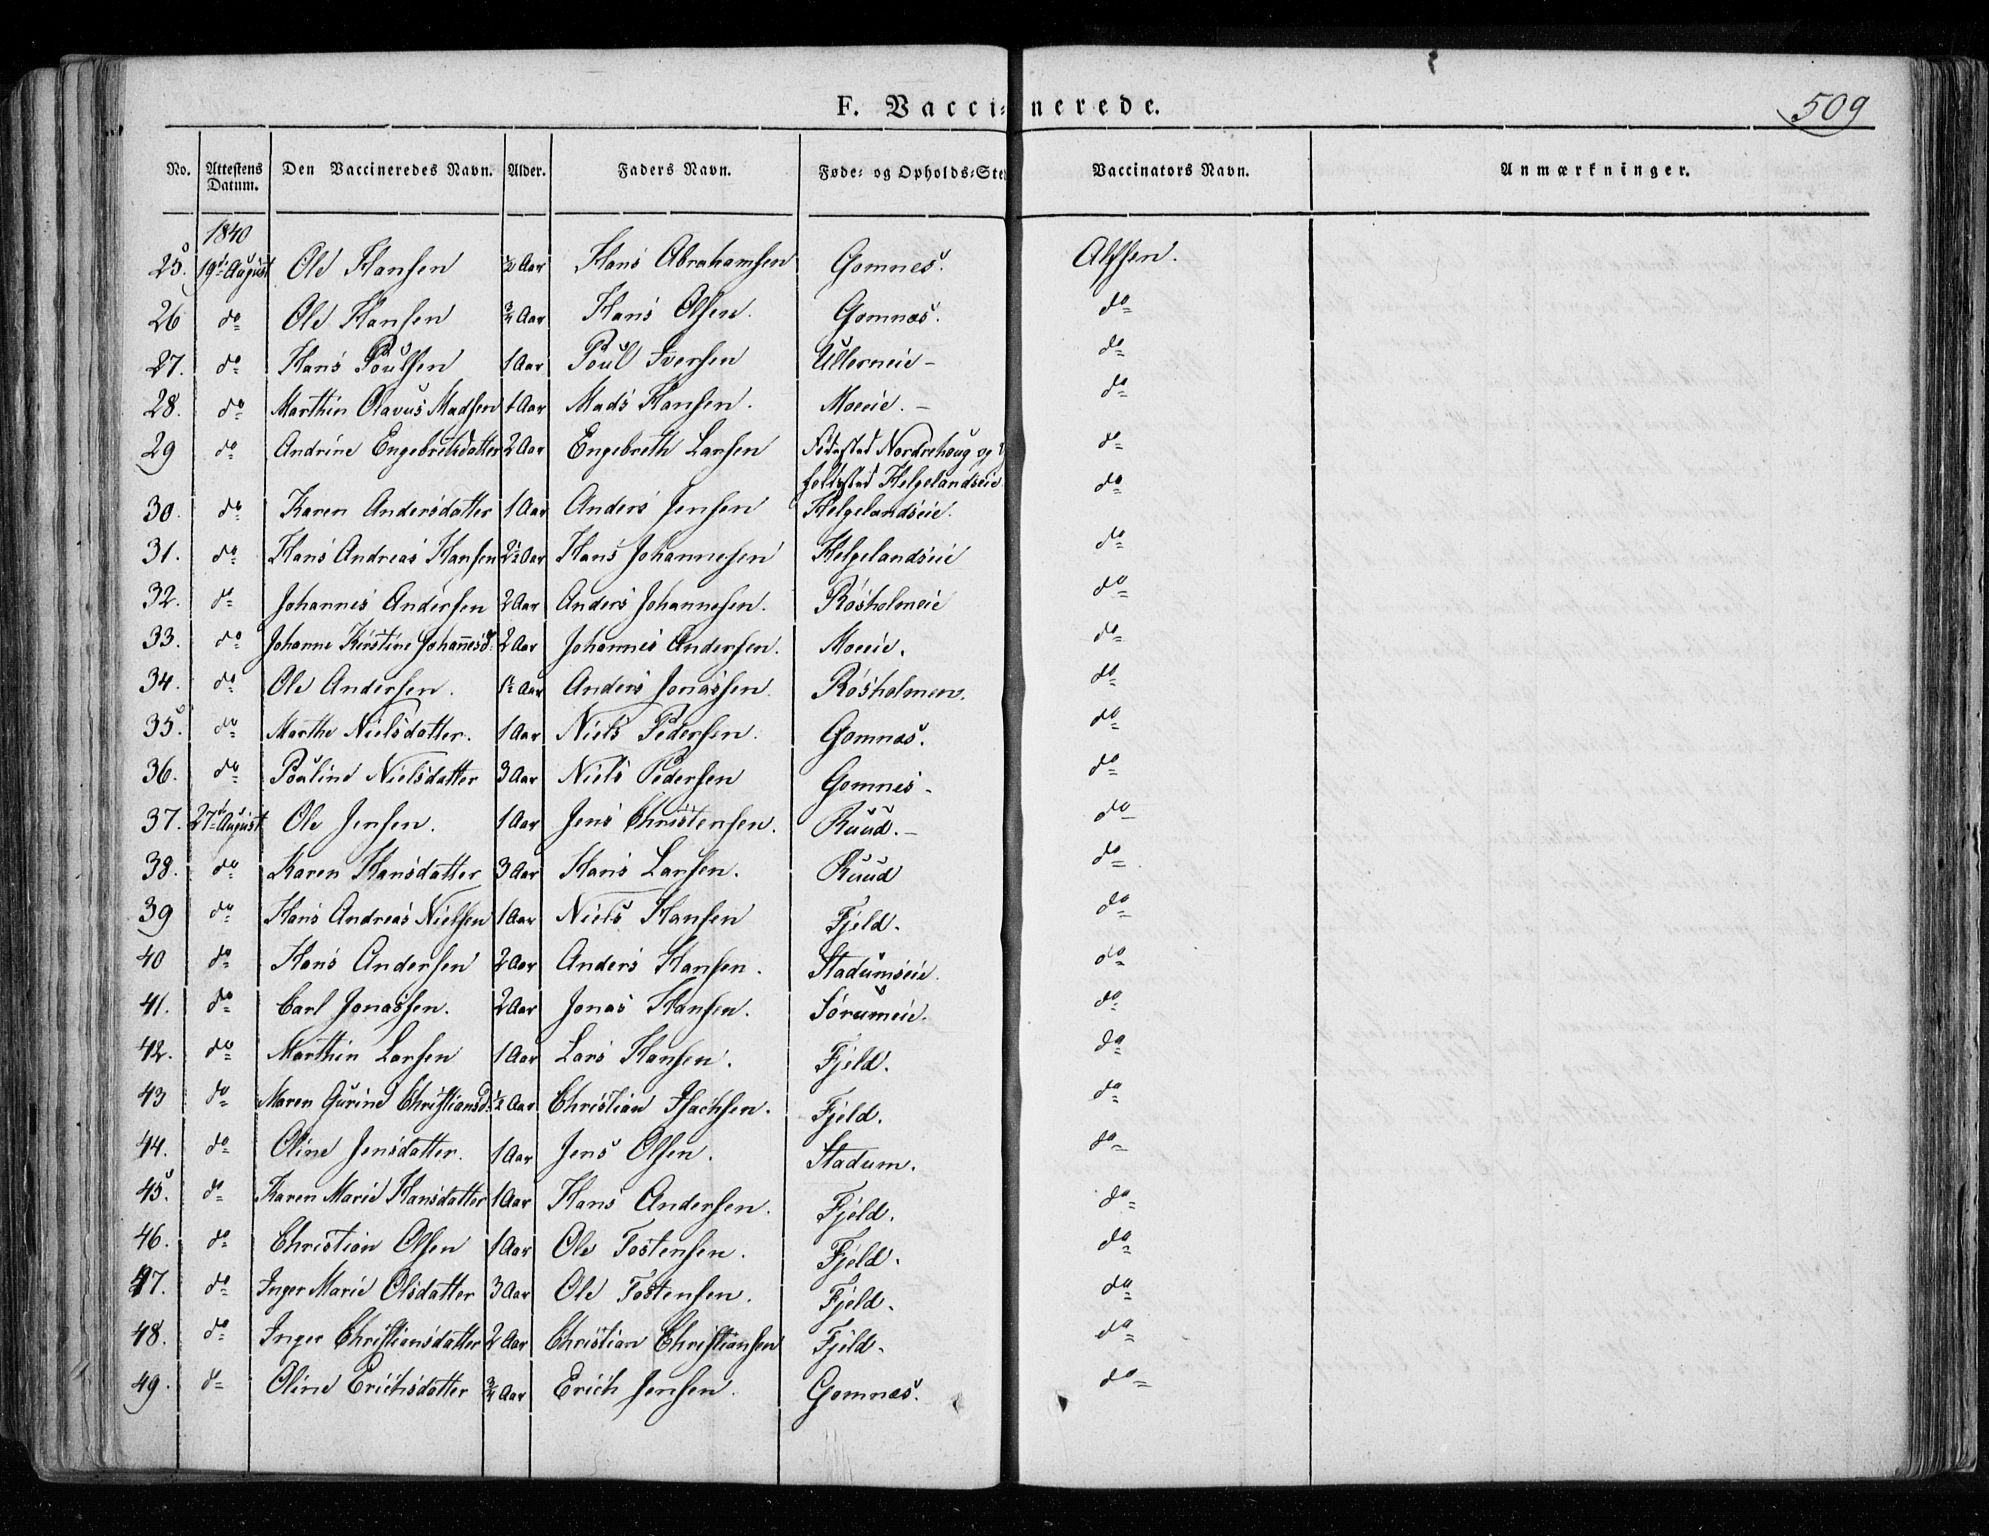 F. Vaccinerede.
509
No. Attestens Datum. Den Vaccineredes Navn. Alder. Faders Navn. Føde- og Opholds-Ste Vaccinators Navn. Anmærkninger.
1840
25. 19de August Ole Hansen ½ Aar Hans Abrahamsen Gomnes. Alfsen.
26 do Ole Hansen ¾ Aar Hans Olsen. Gomnæs. do
27. do Hans Poulsen 1 Aar Poul Iversen Ullerneie - do
28. do Marthin Olavus Madsen 1 Aar Mads Hansen. Moeie. - do
29 do Andrine Engebretsdatter 2 Aar Engebreth Larsen Fødested Nordrehoug og do
Helgelandseie
30. do Karen Andersdatter 1 Aar Anders Jensen Helgelandseie. do
31. do Hans Andreas Hansen 2½ Aar Hans Johannesen Helgelandseie do
32. do Johannes Andersen 2 Aar Anders Johannesen. Røsholmeie do
33. do Johanne Kirstine Johannesd. 2 Aar Johannes Andersen. Moeie. do
34. do Ole Andersen. 1½ Aar Anders Jonassen. Røsholmen. do
35. do Marthe Nielsdatter. 1 Aar Niels Pedersen. Gomnæs. do
36. do Pouline Nielsdatter 3 Aar Niels Pedersen Gomnes - do
37. 27de August Ole Jensen. 1 Aar Jens Christensen. Ruud. - do
38. do Karen Hansdatter 3 Aar Hans Larsen. Ruud do
39 do Hans Andreas Nielsen 1 Aar Niels Hansen Fjeld. do
40 do Hans Andersen 2 Aar Anders Hansen. Stadumseie. do
41. do Carl Jonassen. 2 Aar Jonas Hansen. Sørumeie. do
42. do Marthin Larsen 1 Aar Lars Hansen. Fjeld. do
43 do Maren Gurine Christiansd. ½ Aar Christian Isachsen. Fjeld. do
44. do Oline Jensdatter. 1 Aar Jens Olsen. Stadum. do
45. do Karen Marie Hansdatter 1 Aar Hans Andersen. Fjeld. do
46. do Christian Olsen 1 Aar Ole Tostensen. Fjeld. do
47. do Inger Marie Olsdatter 3 Aar Ole Tostensen. Fjeld. do
48. do Inger Christiansdatter 2 Aar Christian Christiansen Fjeld. do
49. do Oline Erichsdatter ¾ Aar Erich Jensen. Gomnæs. do